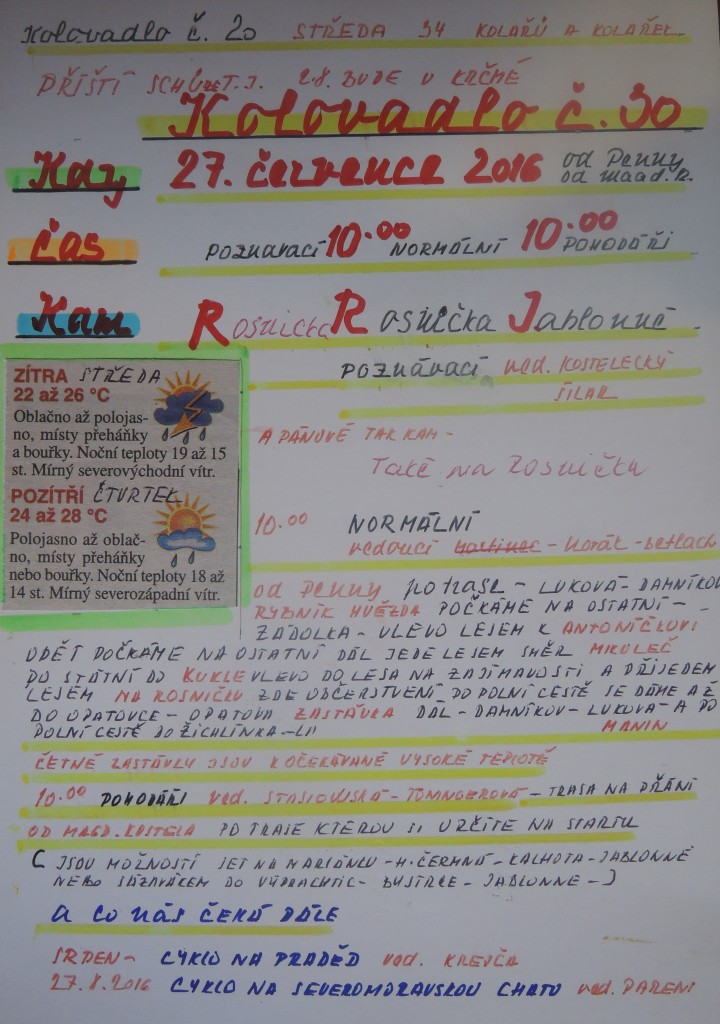 Kolovadlo č. 20 STŘEDA 34 KOLAŘŮ A KOLAŘEK
PŘÍŠTÍ SCHŮZE T.J. 2.8. BUDE V KRČMĚ
Kolovadlo č. 30
Kdy 27. července 2016 od Penny
od maad. K.
Čas POZNAVACÍ 10.00 NORMÁLNÍ 10.00 POHODÁŘI
Kam Rosnička Rosnička Jablonné
POZNÁVACÍ ved. KOSTELECKÝ
ŠILAR
ZÍTRA STŘEDA
22 až 26 °C
Oblačno až polojas-
no, místy přeháňky
a bouřky. Noční teploty 19 až 15
st. Mírný severovýchodní vítr.
POZÍTŘÍ ČTVRTEK
24 až 28 °C
Polojasno až oblač-
no, místy přeháňky
nebo bouřky. Noční teploty 18 až
14 st. Mírný severozápadní vítr.
A PÁNOVÉ TAK KAM -
Také na Rosničku
10.00 NORMÁLNÍ
vedoucí - Horák -
od Penny po trase - LUKOVÁ - DAMNÍKOV
RYBNÍK HVĚZDA POČKÁME NA OSTATNÍ -
ZÁDOLKA - VLEVO LESEM K ANTONÍČKOVI
OPĚT POČKÁME NA OSTATNÍ DÁL JEDE LESEM SMĚR MIKULEČ
PO STÁTNÍ DO KUKLE VLEVO DO LESA NA ZAJÍMAVOSTI A PŘIJEDEM
LESEM NA ROSNIČKU ZDE OBČERSTVENÍ PO POLNÍ CESTĚ SE DÁME AŽ
DO OPATOVCE - OPATOVA ZASTÁVKA DÁL - DAMNÍKOV - LUKOVÁ - A PO
POLNÍ CESTĚ DO ŽICHLÍNKA - MANIN
ČETNÉ ZASTÁVKY JSOU K OČEKÁVANÉ VYSOKÉ TEPLOTĚ
10.00 POHODÁŘI ved. STASIOWSKÁ - - TRASA NA PŘÁNÍ
OD MAGD. KOSTELA PO TRASE KTEROU SI URČÍTE NA STARTU
( JSOU MOŽNOSTI JET NA MARIÁNKU - H. ČERMNÁ - KALHOTA - JABLONNÉ
NEBO SÁZAVÁKEM DO VÝPRACHTIC - BYSTŘEC - JABLONNÉ - )
A co nás čeká dále
SRPEN - CYKLO NA PRADĚD ved. KREJČA
27.8.2016 CYKLO NA SEVEROMORAVSKOU CHATU ved. PAŘENI